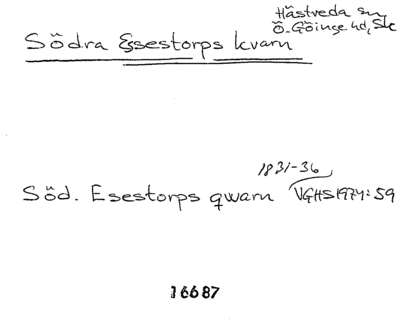 Hästveda sn,
Ö. Göinge hd, Sk
Södra Esestorps kvarn
1831-36
Söd. Esestorps qwarn VGHS 1974:59
16687